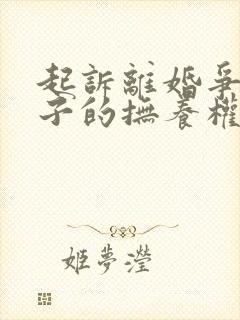 起訴離婚爭
子的撫養權
姬夢瀅